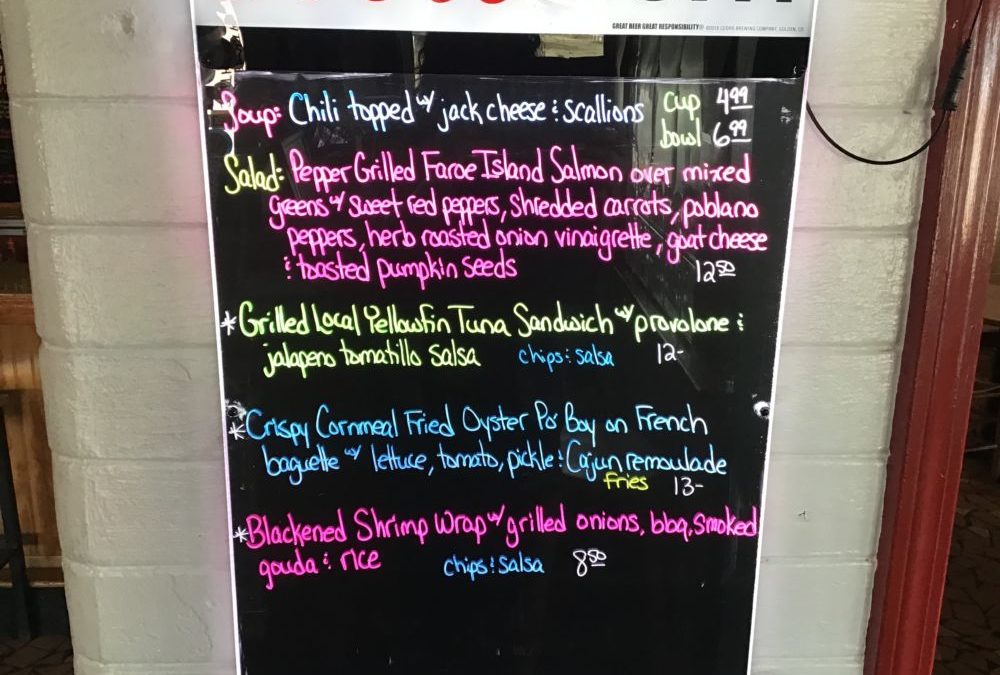 GREAT BEER GREAT RESPONSIBILITY®
Soup: Chili topped w/ jack cheese & scallions cup 4.99
bowl 6.99
Salad: Pepper Grilled Faroe Island Salmon over mixed
greens w/ sweet red peppers, shredded carrots, poblano
peppers, herb roasted onion vinaigrette, goat cheese
& toasted pumpkin seeds 12.50
*Grilled Local Yellowfin Tuna Sandwich w/ provolone &
jalapeno tomatillo salsa chips & salsa 12-
*Crispy Cornmeal Fried Oyster Po' Boy on French
baguette w/ lettuce, tomato, pickle & Cajun remoulade
fries 13-
*Blackened Shrimp Wrap w/ grilled onions, bbq, smoked
gouda & rice chips & salsa 8.50